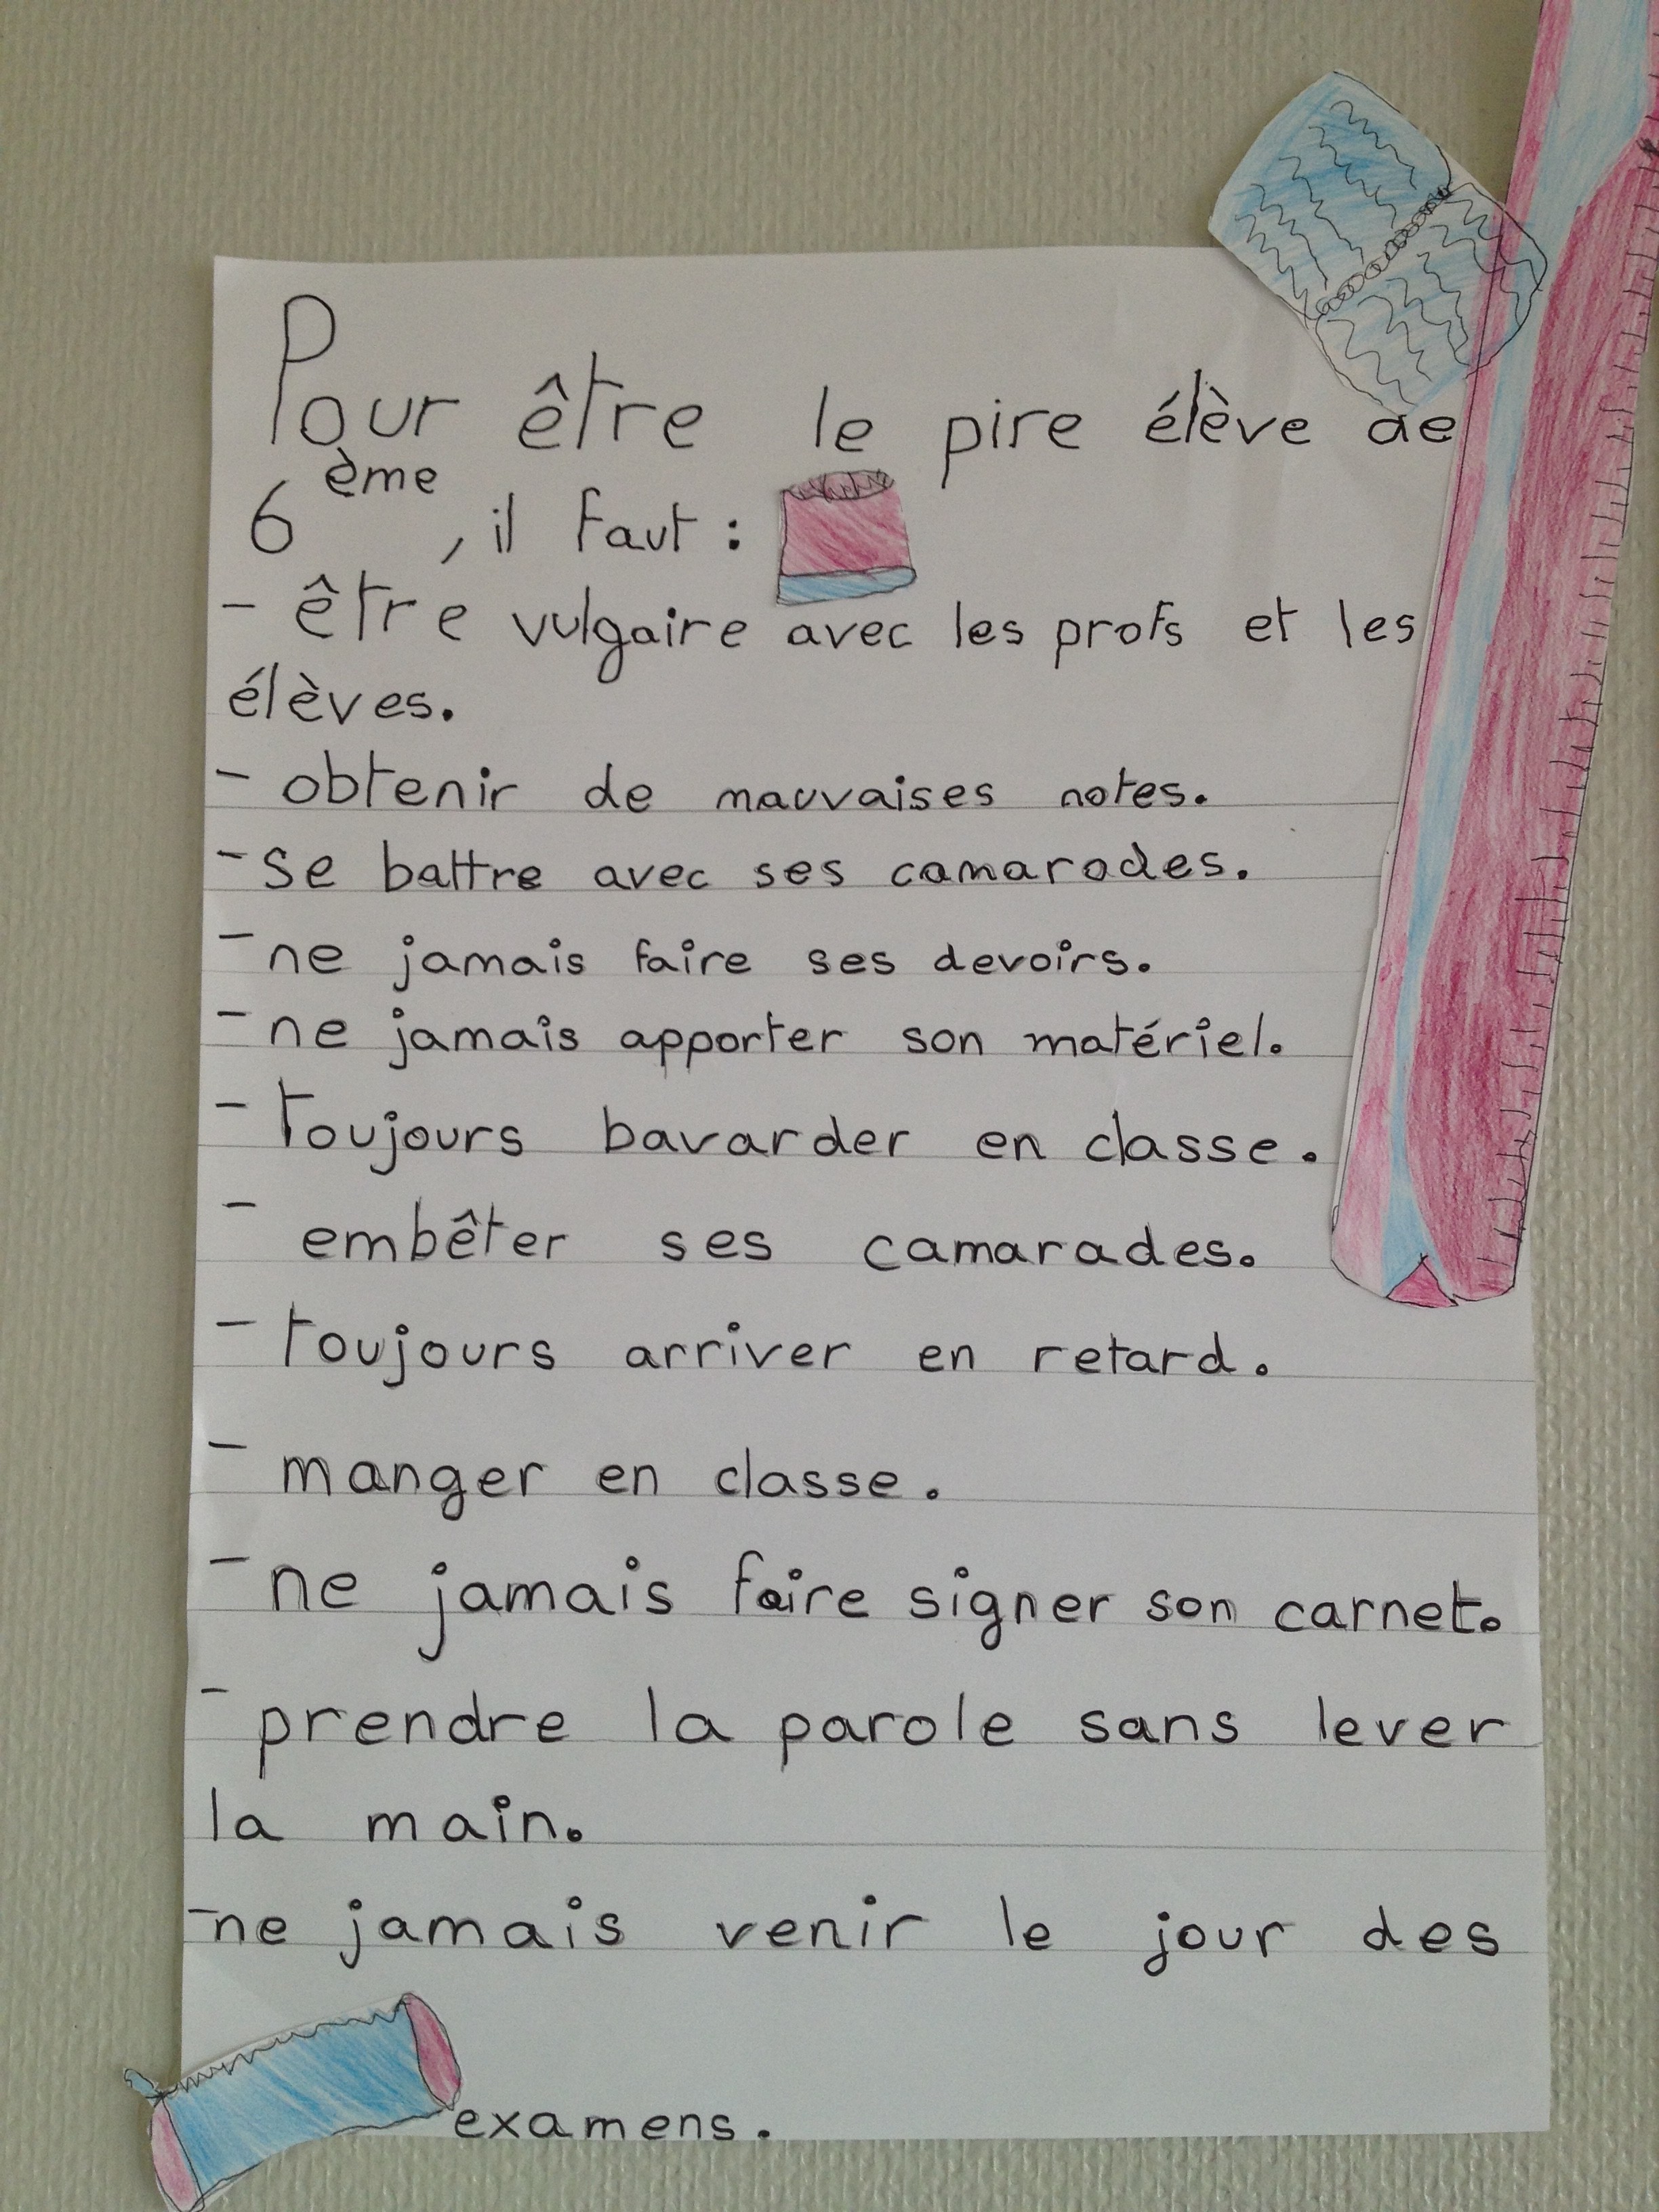 Pour être le pire élève de
6ème, il faut :
- être vulgaire avec les profs et les
élèves.
- obtenir de mauvaises notes.
- se battre avec ses camarades.
- ne jamais faire ses devoirs.
- ne jamais apporter son matériel.
- toujours bavarder en classe.
- embêter ses camarades.
- toujours arriver en retard.
- manger en classe.
- ne jamais faire signer son carnet.
- prendre la parole sans lever
la main.
- ne jamais venir le jour des
examens.